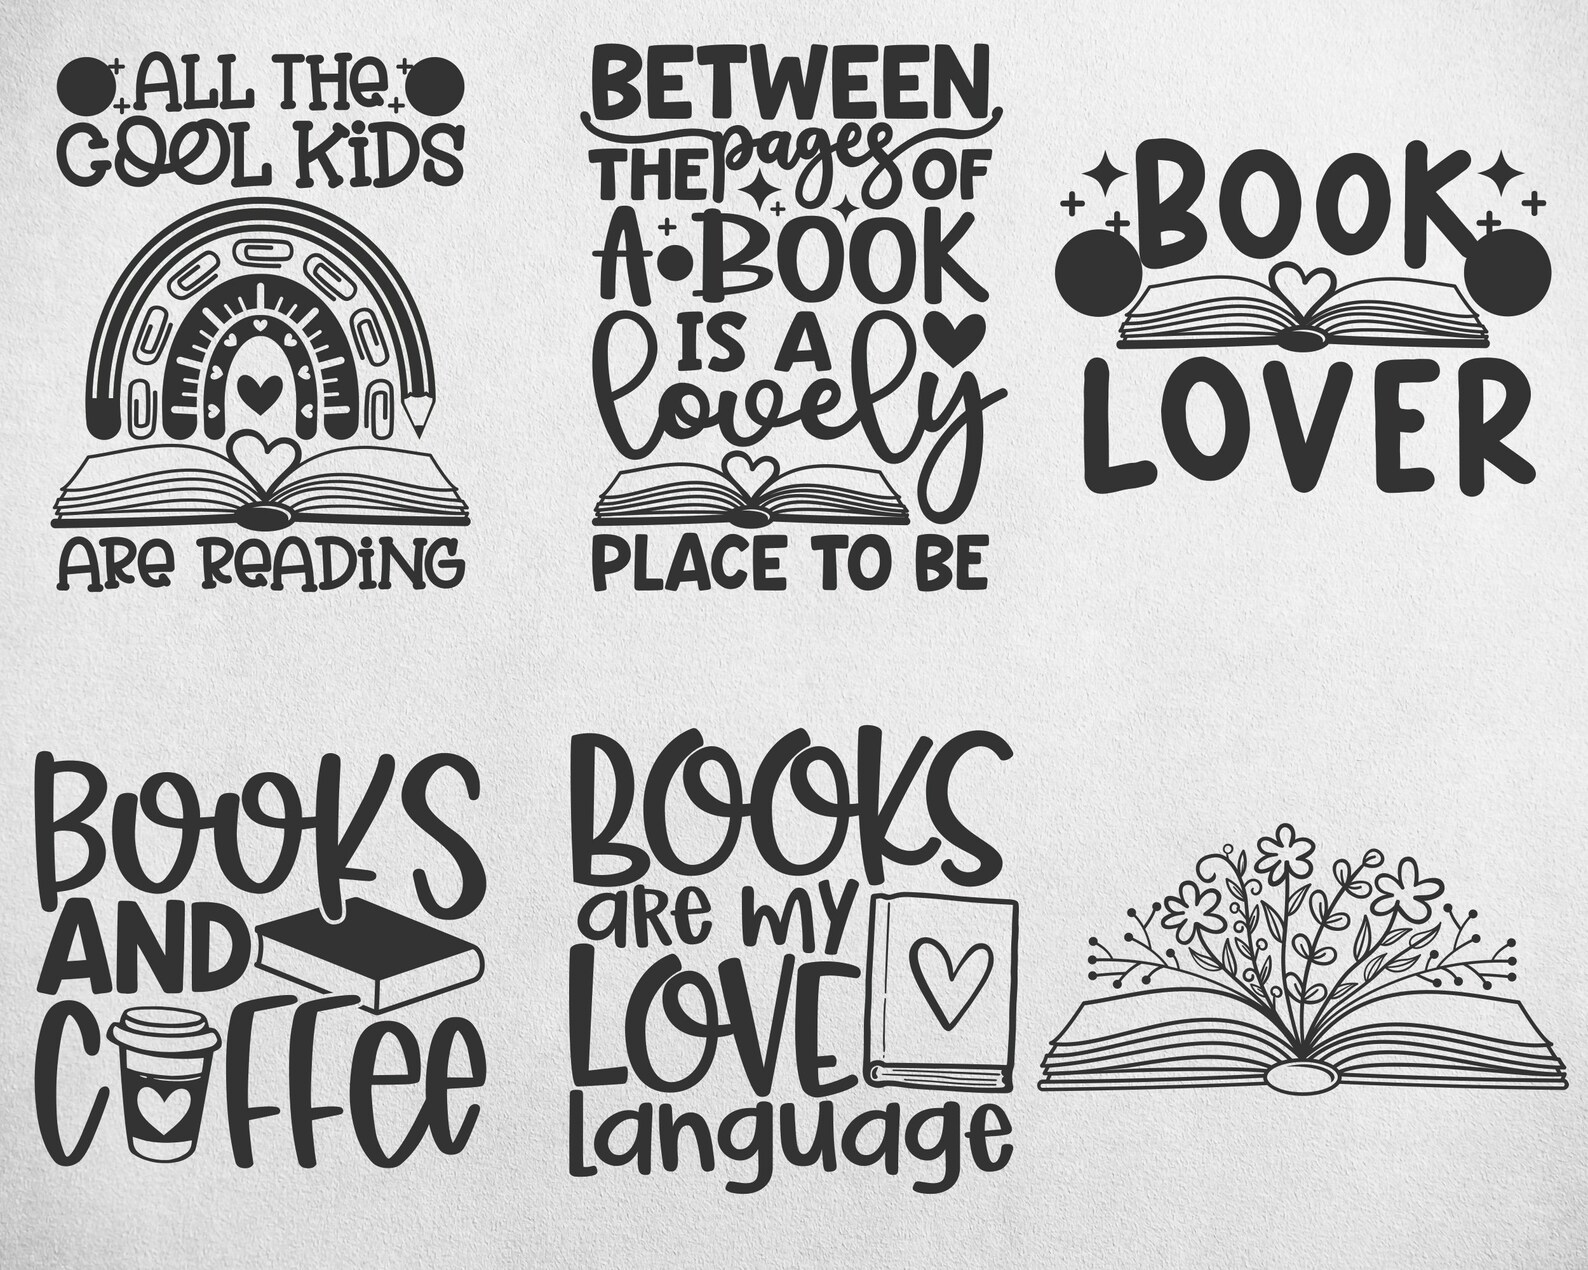 ALL THE
COOL KiDS
ARe ReADiNG
BETWEEN
THE pages OF
A BOOK
IS A
lovely
PLACE TO BE
BOOK
LOVER
BOOKS
AND
COFFee
BOOKS
are my
LOVE
language